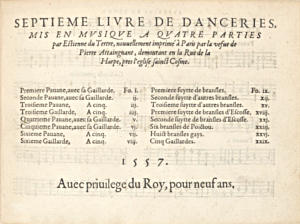 SEPTIEME LIVRE DE DANCERIES,
MIS EN MVSIQVE A QVATRE PARTIES
par Estienne du Tertre, nouuellement imprimé à Paris par la vefue de
Pierre Attaingnant, demourant en la Rue de la
Harpe, pres l'eglise sainct Cosme.
Premiere Pauane, auec sa Gaillarde. Fo. i.
Seconde Pauane, auec sa Gaillarde. ij.
Troisieme Pauane, A cinq. iij.
Troisieme Gaillarde, A cinq.
Quatrieme Pauane auec sa Gaillarde.
Cinquieme Pauane, auec sa Gaillarde.
Sixieme Pauane, A cinq.
Sixieme Gaillarde, A cinq.
Premiere suytte de bransles. Fo. ix.
Seconde suytte d'autres bransles. xij.
Troisieme suytte d'autres bransles. xv.
Premiere suytte de bransles d'Escosse. xviij.
Seconde suytte de bransles d'Escosse.
Six bransles de Poictou.
Huict bransles gays.
Cinq Gaillardes. xxix.
1557.
Auec priuilege du Roy, pour neuf ans.